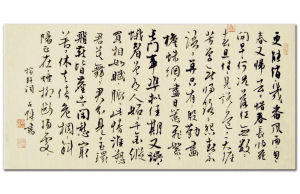 更能消幾番風雨匆匆
春又歸去惜春長怕花
開早何況落紅無數春
且住見說道天涯芳
草無歸路怨春不
語算只有殷勤畫
檐蛛網盡日惹飛絮
長門事準擬佳期又誤
蛾眉曾有人妒千金縱
買相如賦脈脈此情誰訴
君莫舞君不見玉環
飛燕皆塵土閒愁最
苦休去倚危欄斜
陽正在煙柳斷腸處
稼軒詞